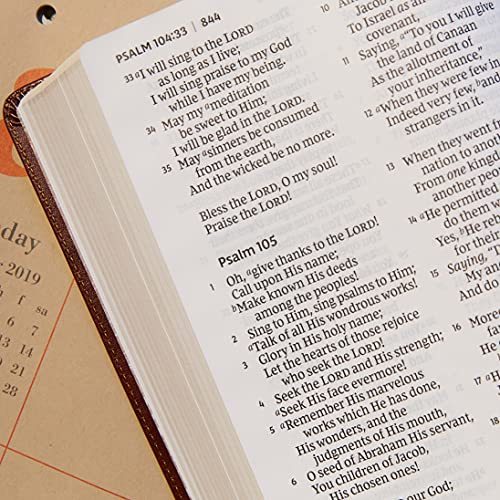 PSALM 104:33 | 844
33 aI will sing to the LORD
as long as I live;
I will sing praise to my God
while I have my being.
34 May my ameditation
be sweet to Him;
I will be glad in the LORD.
35 May asinners be consumed
from the earth,
And the wicked be no more.
Bless the LORD, O my soul!
Praise the LORD!
Psalm 105
1 Oh, agive thanks to the LORD!
Call upon His name;
bMake known His deeds
among the peoples!
2 Sing to Him, sing psalms to Him;
aTalk of all His wondrous works!
3 Glory in His holy name;
Let the hearts of those rejoice
who seek the LORD!
4 Seek the LORD and His strength;
aSeek His face evermore!
5 aRemember His marvelous
works which He has done,
His wonders, and the
judgments of His mouth,
6 O seed of Abraham His servant,
You children of Jacob,
His chosen ones!
our God;
Jacob for
To Israel as an
covenant,
11 Saying, a"To you I will give
the land of Canaan
As the allotment of
your inheritance,"
12 aWhen they were few in
Indeed very few, band
strangers in it.
13 When they went f
nation to another
From one kingd
another peop
14 aHe permitte
do them
Yes, bHe re
their sa
15 Saying, "
My an
And do
16 More
in th
He d
17
18
day
2019
h f sa
4 5
6 7
13 14
20 21
28